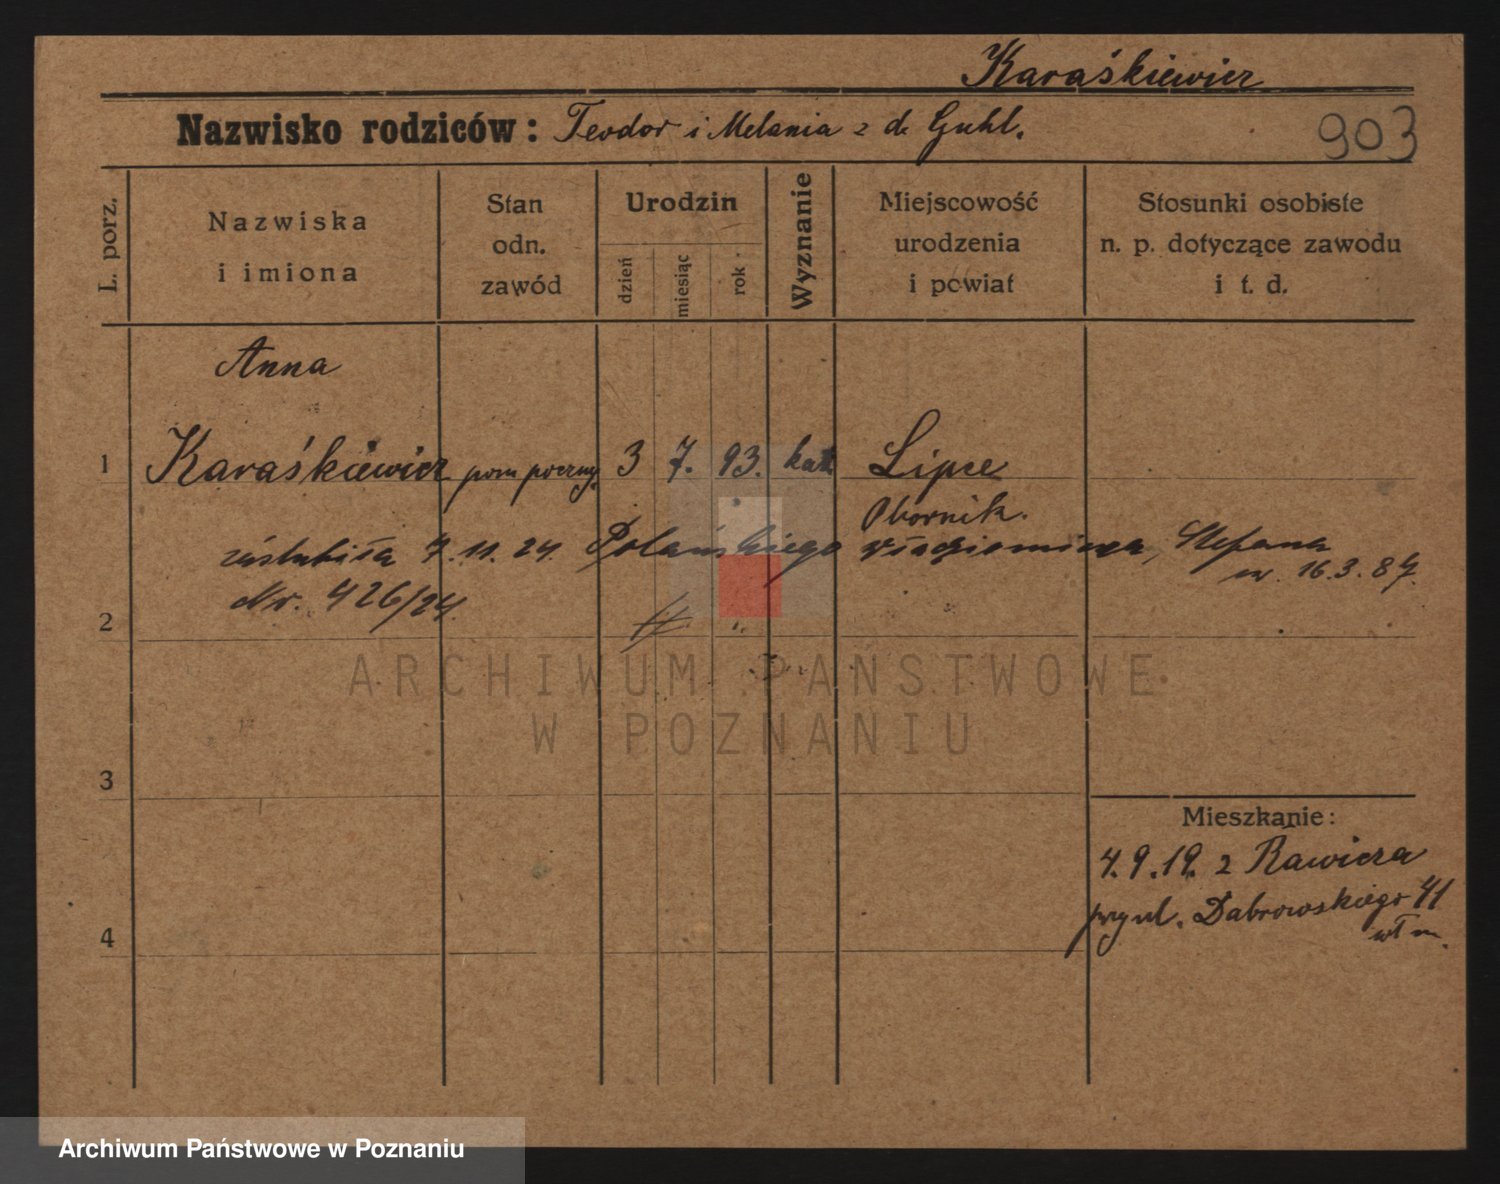 Karaśkiewicz
Nazwisko rodziców: Teodor i Melania z d. Guhl.
903
L. porz.
Nazwiska
i imiona
Stan
odn.
zawód
Urodzin
dzień
miesiąc
rok
Wyznanie
Miejscowość
urodzenia
i powiat
Stosunki osobiste
n. p. dotyczące zawodu
i t. d.
Anna
1 Karaśkiewicz pom poczny. 3 7. 93. kat. Lipce
Obornik.
zaślubiła 7.11.24. Polańskiego Włodzimierza, Stefana
ur. 16.3.87.
Nr. 426/24.
2
3
4
Mieszkanie:
4.9.19. z Rawicza
przy ul. Dabrowskiego 41
wł m.
ARCHIWUM PAŃSTWOWE
W POZNANIU
Archiwum Państwowe w Poznaniu